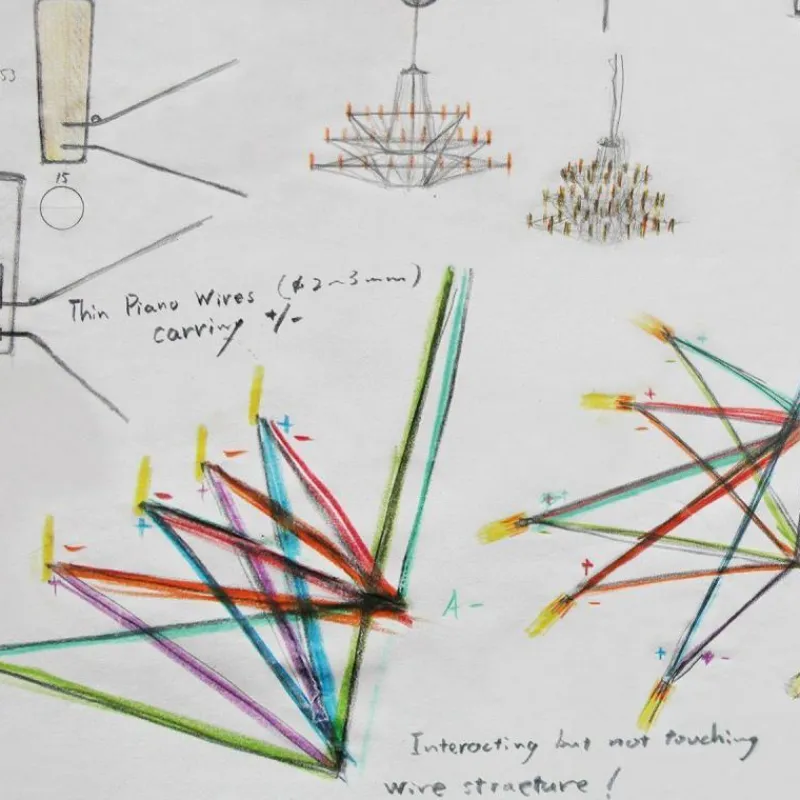 53
15
Thin Piano Wires (φ2~3mm)
carring +/-
+ -
-
+
-
+
-
+
A-
+
-
+
-
+
-
+
-
+ -
Interacting but not touching
wire structure !